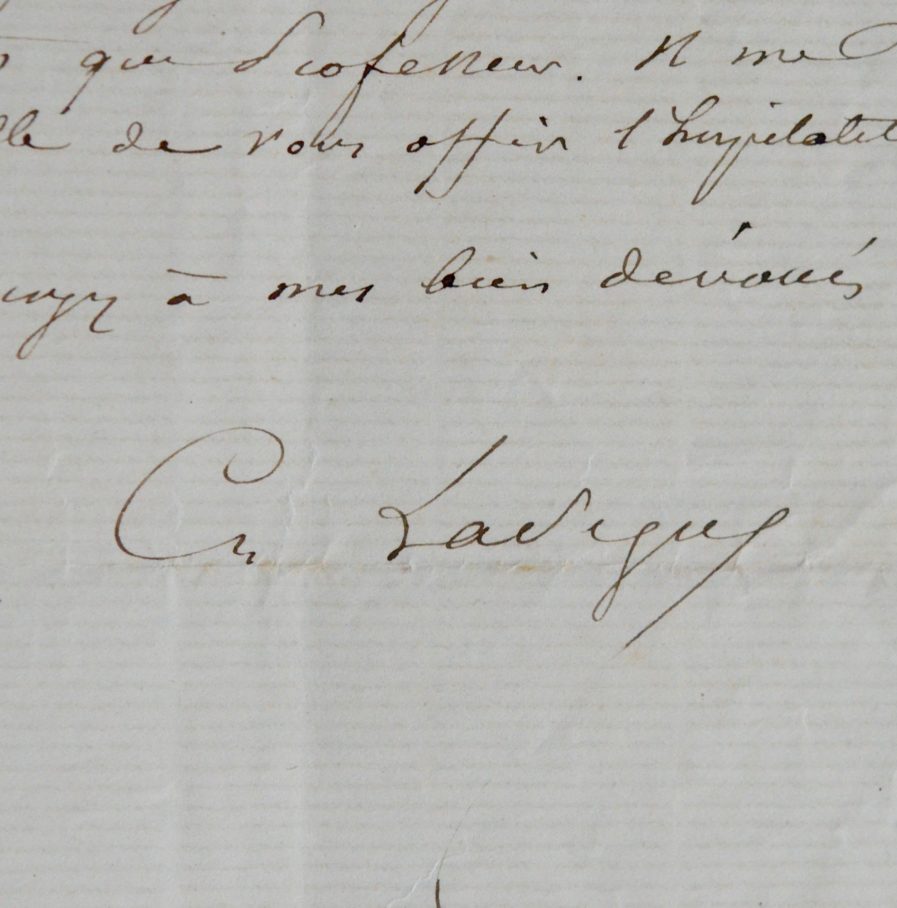 que Professeur. Il me
lle de vous offrir l'hospitalit
à mes bien dévoués
Ch Lavigerie